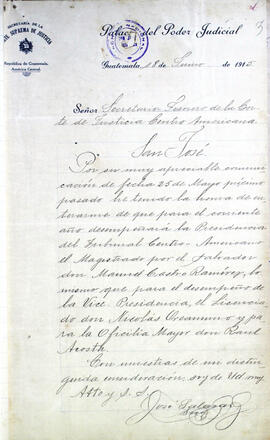 SECRETARIA DE LA
CORTE SUPREMA DE JUSTICIA
República de Guatemala.
América Central.
Palacio del Poder Judicial
3
Guatemala, 18 de Junio de 1915
Señor Secretario Tesorero de la Cor-
te de Justicia Centro Americana.
San José
Por su muy apreciable comuni-
cación de fecha 25 de Mayo próximo
pasado he tenido la honra de en-
terarme de que para el corriente
año desempeñará la Presidencia
del Tribunal Centro-Americano
el Magistrado por el Salvador
don Manuel Castro Ramírez, lo
mismo que para el desempeño de
la Vice Presidencia, el Licencia-
do don Nicolás Oreamuno y pa
ra la Oficialia Mayor don Raul
Acosta.
Con muestras de mi distin
guida consideración, soy de Ud. muy
Atto y S. S.
José